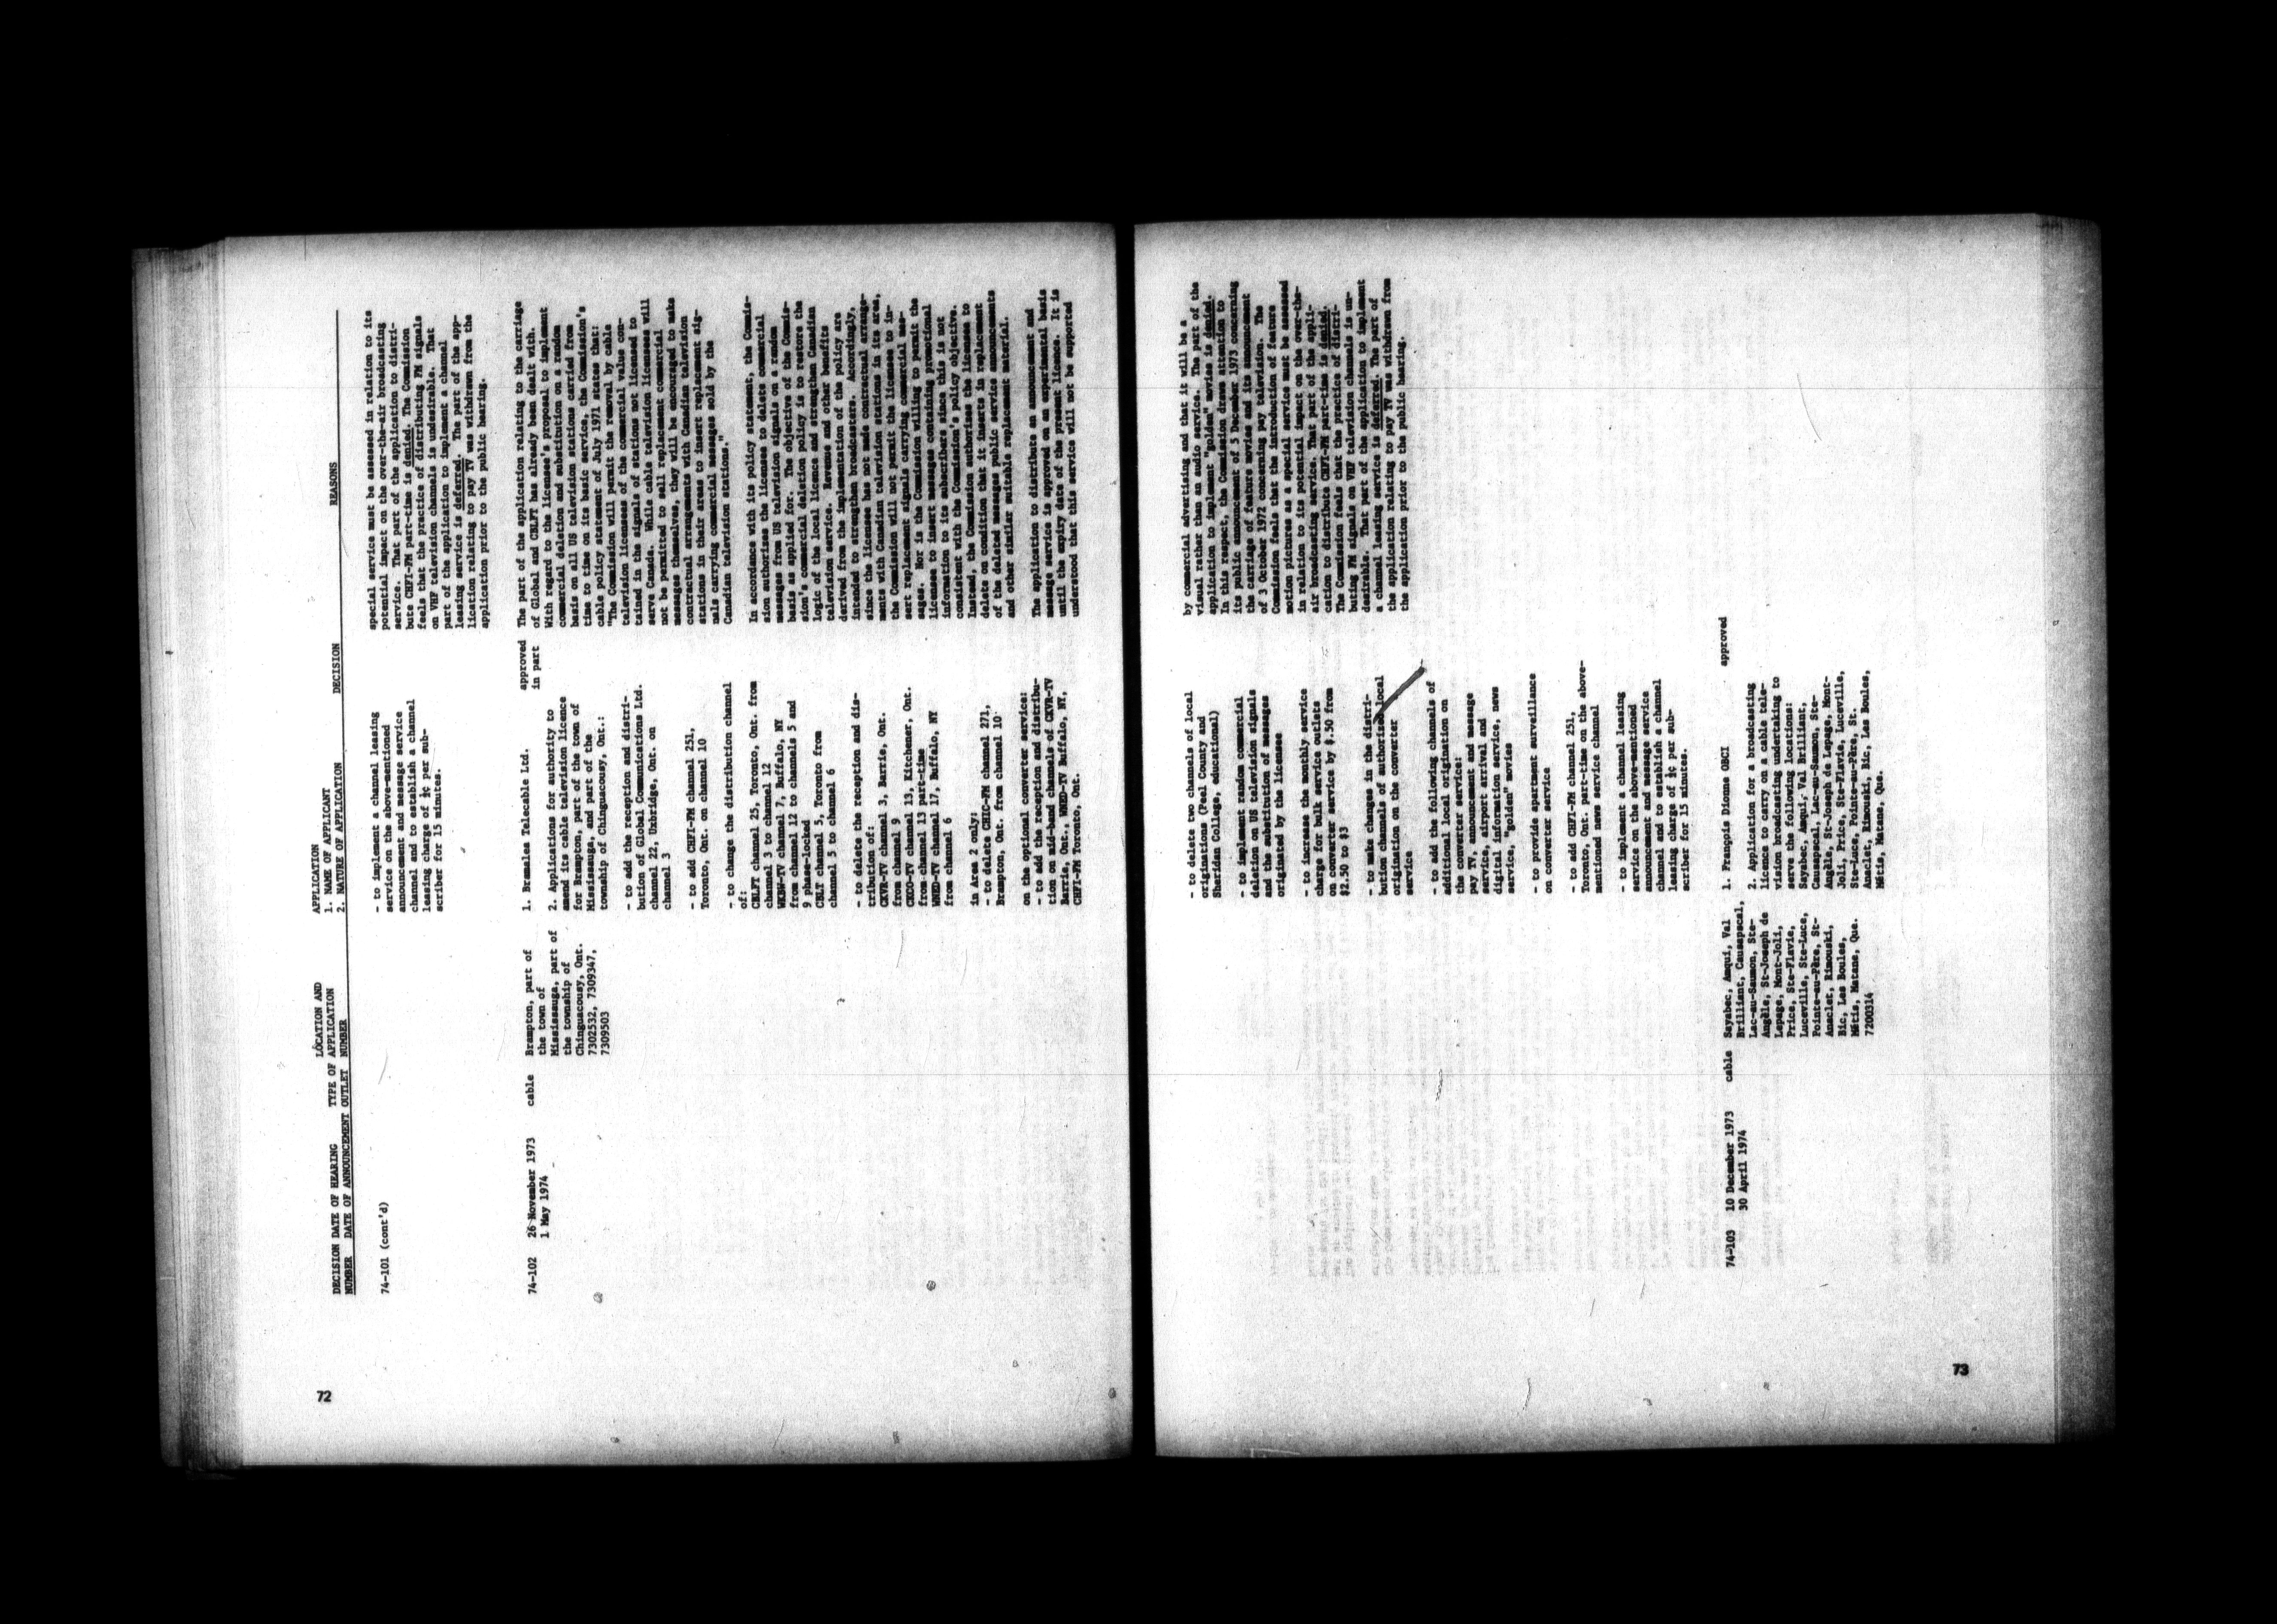 DECISION DATE OF HEARING TYPE OF APPLICATION
NUMBER DATE OF ANNOUNCEMENT OUTLET NUMBER
LOCATION AND
APPLICATION
1. NAME OF APPLICANT
2. NATURE OF APPLICATION
DECISION
REASONS
74-101 (cont'd)
- to implement a channel leasing
service on the above-mentioned
announcement and message service
channel and to establish a channel
leasing charge of ½¢ per sub-
scriber for 15 minutes.
special service must be assessed in relation to its
potential impact on the over-the-air broadcasting
service. That part of the application to distri-
bute CHFI-FM part-time is denied. The Commission
feels that the practice of distributing FM signals
on VHF television channels is undesirable. That
part of the application to implement a channel
leasing service is deferred. The part of the app-
lication relating to pay TV was withdrawn from the
application prior to the public hearing.
74-102
26 November 1973
1 May 1974
cable
Brampton, part of
the town of
Mississauga, part of
the township of
Chinguacousy, Ont.
7302532, 7309347,
7309503
1. Bramalea Telecable Ltd.
2. Applications for authority to
amend its cable television licence
for Brampton, part of the town of
Mississauga, and part of the
township of Chinguacousy, Ont.:
- to add the reception and distri-
bution of Global Communications Ltd.
channel 22, Uxbridge, Ont. on
channel 3
- to add CHFI-FM channel 251,
Toronto, Ont. on channel 10
- to change the distribution channel
of:
CBLFT channel 25, Toronto, Ont. from
channel 3 to channel 12
WKBW-TV channel 7, Buffalo, NY
from channel 12 to channels 5 and
9 phase-locked
CBLT channel 5, Toronto from
channel 5 to channel 6
- to delete the reception and dis-
tribution of:
CKVR-TV channel 3, Barrie, Ont.
from channel 9
CKCO-TV channel 13, Kitchener, Ont.
from channel 13 part-time
WNED-TV channel 17, Buffalo, NY
from channel 6
in Area 2 only:
- to delete CHIC-FM channel 271,
Brampton, Ont. from channel 10
on the optional converter service:
- to add the reception and distribu-
tion on mid-band channels of CKVR-TV
Barrie, Ont., WNED-TV Buffalo, NY,
CHFI-FM Toronto, Ont.
approved
in part
The part of the application relating to the carriage
of Global and CBLFT has already been dealt with.
With regard to the licensee's proposal to implement
commercial deletion and substitution on a random
basis on all US television stations carried from
time to time on its basic service, the Commission's
cable policy statement of July 1971 states that:
"The Commission will permit the removal by cable
television licensees of the commercial value con-
tained in the signals of stations not licensed to
serve Canada. While cable television licensees will
not be permitted to sell replacement commercial
messages themselves, they will be encouraged to make
contractual arrangements with Canadian television
stations in their areas to insert replacement sig-
nals carrying commercial messages sold by the
Canadian television stations."
In accordance with its policy statement, the Commis-
sion authorises the licensee to delete commercial
messages from US television signals on a random
basis as applied for. The objective of the Commis-
sion's commercial deletion policy is to restore the
logic of the local licence and strengthen Canadian
television service. Revenue and other benefits
derived from the implementation of the policy are
intended to strengthen broadcasters. Accordingly,
since the licensee has not made contractual arrange-
ments with Canadian television stations in its area,
the Commission will not permit the licensee to in-
sert replacement signals carrying commercial mes-
sages. Nor is the Commission willing to permit the
licensee to insert messages containing promotional
information to its subscribers since this is not
consistent with the Commission's policy objective.
Instead, the Commission authorises the licensee to
delete on condition that it inserts in replacement
of the deleted messages public service announcements
and other similar suitable replacement material.
The application to distribute an announcement and
message service is approved on an experimental basis
until the expiry date of the present licence. It is
understood that this service will not be supported
72
- to delete two channels of local
originations (Peel County and
Sheridan College, educational)
- to implement random commercial
deletion on US television signals
and the substitution of messages
originated by the licensee
- to increase the monthly service
charge for bulk service outlets
on converter service by $.50 from
$2.50 to $3
- to make changes in the distri-
bution channels of authorised local
origination on the converter
service
- to add the following channels of
additional local origination on
the converter service:
pay TV, announcement and message
service, airport arrival and
digital information service, news
service, "golden" movies
- to provide apartment surveillance
on converter service
- to add CHFI-FM channel 251,
Toronto, Ont. part-time on the above-
mentioned news service channel
- to implement a channel leasing
service on the above-mentioned
announcement and message service
channel and to establish a channel
leasing charge of ½¢ per sub-
scriber for 15 minutes.
by commercial advertising and that it will be a
visual rather than an audio service. The part of the
application to implement "golden" movies is denied.
In this respect, the Commission draws attention to
its public announcement of 5 December 1973 concerning
the carriage of feature movies and its announcement
of 3 October 1972 concerning pay television. The
Commission feels that the introduction of feature
motion pictures as a special service must be assessed
in relation to its potential impact on the over-the-
air broadcasting service. That part of the appli-
cation to distribute CHFI-FM part-time is denied.
The Commission feels that the practice of distri-
buting FM signals on VHF television channels is un-
desirable. That part of the application to implement
a channel leasing service is deferred. The part of
the application relating to pay TV was withdrawn from
the application prior to the public hearing.
74-103
10 December 1973
30 April 1974
cable
Sayabec, Amqui, Val
Brilliant, Causapscal,
Lac-au-Saumon, Ste-
Angèle, St-Joseph de
Lepage, Mont-Joli,
Price, Ste-Flavie,
Luceville, Ste-Luce,
Pointe-au-Père, St-
Anaclet, Rimouski,
Bic, Les Boules,
Métis, Matane, Que.
7200314
1. François Dionne OBCI
2. Application for a broadcasting
licence to carry on a cable tele-
vision broadcasting undertaking to
serve the following locations:
Sayabec, Amqui, Val Brilliant,
Causapscal, Lac-au-Saumon, Ste-
Angèle, St-Joseph de Lepage, Mont-
Joli, Price, Ste-Flavie, Luceville,
Ste-Luce, Pointe-au-Père, St.
Anaclet, Rimouski, Bic, Les Boules,
Métis, Matane, Que.
approved
73